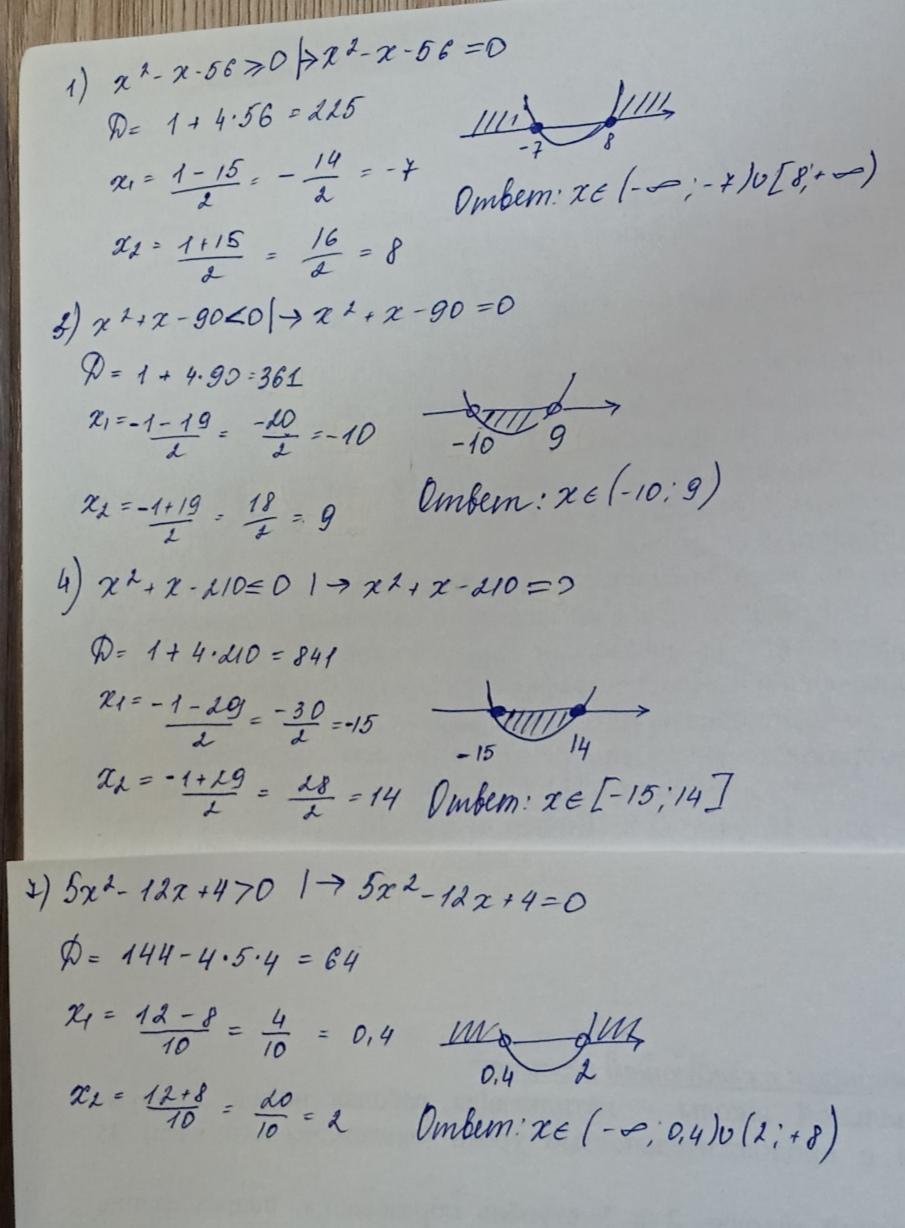 1) x² - x - 56 ⩾ 0 |→ x² - x - 56 = 0
D = 1 + 4·56 = 225
x₁ = (1 - 15)/2 = - 14/2 = -7
-7 8
Ответ: x ∈ (-∞; -7) ∪ [8; +∞)
x₂ = (1 + 15)/2 = 16/2 = 8
3) x² + x - 90 < 0 |→ x² + x - 90 = 0
D = 1 + 4·90 = 361
x₁ = (-1 - 19)/2 = -20/2 = -10
-10 9
x₂ = (-1 + 19)/2 = 18/2 = 9
Ответ: x ∈ (-10; 9)
4) x² + x - 210 ≤ 0 |→ x² + x - 210 = 0
D = 1 + 4·210 = 841
x₁ = (-1 - 29)/2 = -30/2 = -15
-15 14
x₂ = (-1 + 29)/2 = 28/2 = 14
Ответ: x ∈ [-15; 14]
7) 5x² - 12x + 4 > 0 |→ 5x² - 12x + 4 = 0
D = 144 - 4·5·4 = 64
x₁ = (12 - 8)/10 = 4/10 = 0,4
0,4 2
x₂ = (12 + 8)/10 = 20/10 = 2
Ответ: x ∈ (-∞; 0,4) ∪ (2; +8)